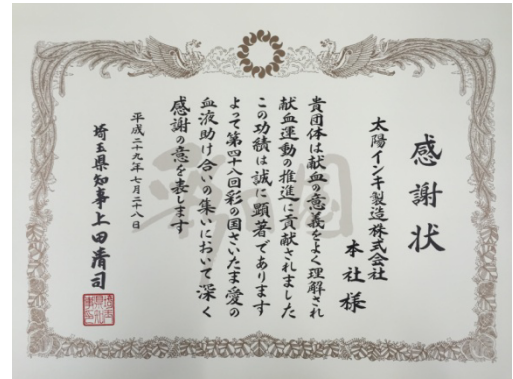 感謝状
太陽インキ製造株式会社
本社様
貴団体は献血の意義をよく理解され
献血運動の推進に貢献されました
この功績は誠に顕著であります
よって第四十八回彩の国さいたま愛の
血液助け合いの集いにおいて深く
感謝の意を表します
平成二十九年七月二十八日
埼玉県知事上田清司